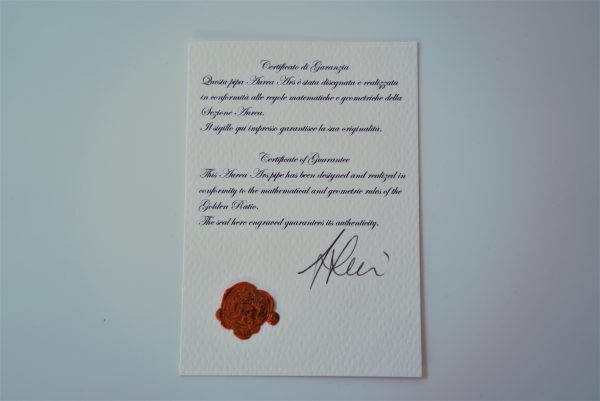 Certificato di Garanzia
Questa pipa Aurea Ars è stata disegnata e realizzata
in conformità alle regole matematiche e geometriche della
Sezione Aurea.
Il sigillo qui impresso garantisce la sua originalità.
Certificate of Guarantee
This Aurea Ars pipe has been designed and realized in
conformity to the mathematical and geometric rules of the
Golden Ratio.
The seal here engraved guarantees its authenticity.